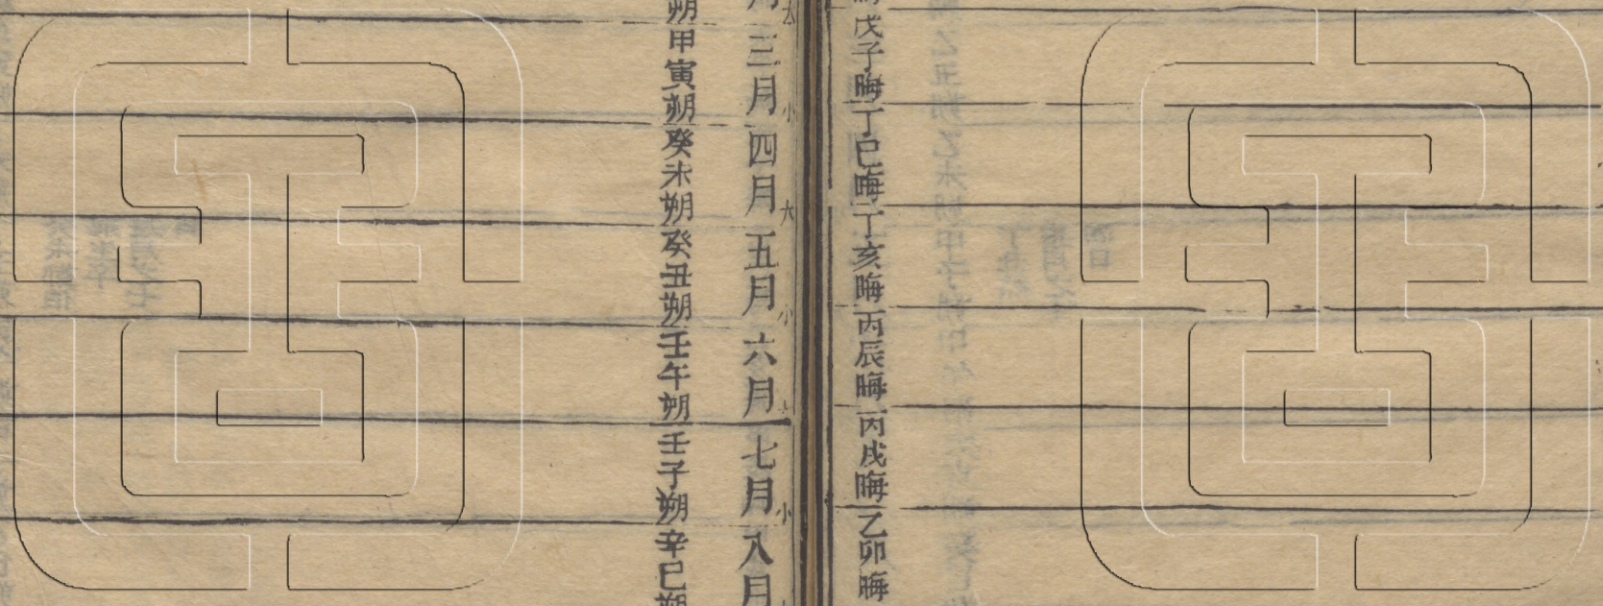 戊子晦丁巳晦丁亥晦丙辰晦丙戌晦乙卯晦
大 三月小 四月大 五月小 六月大 七月小 八月
朔甲寅朔癸未朔癸丑朔壬午朔壬子朔辛巳朔